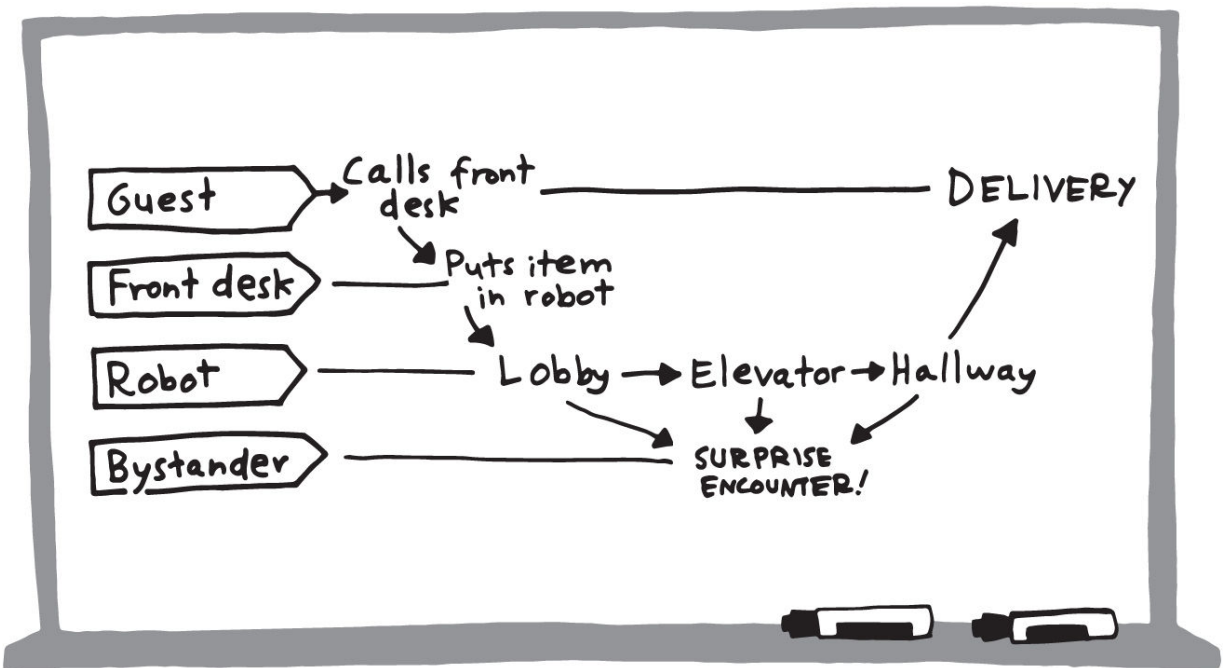 Guest
Calls front
desk
DELIVERY
Front desk
Puts item
in robot
Robot
Lobby
Elevator
Hallway
Bystander
SURPRISE
ENCOUNTER!